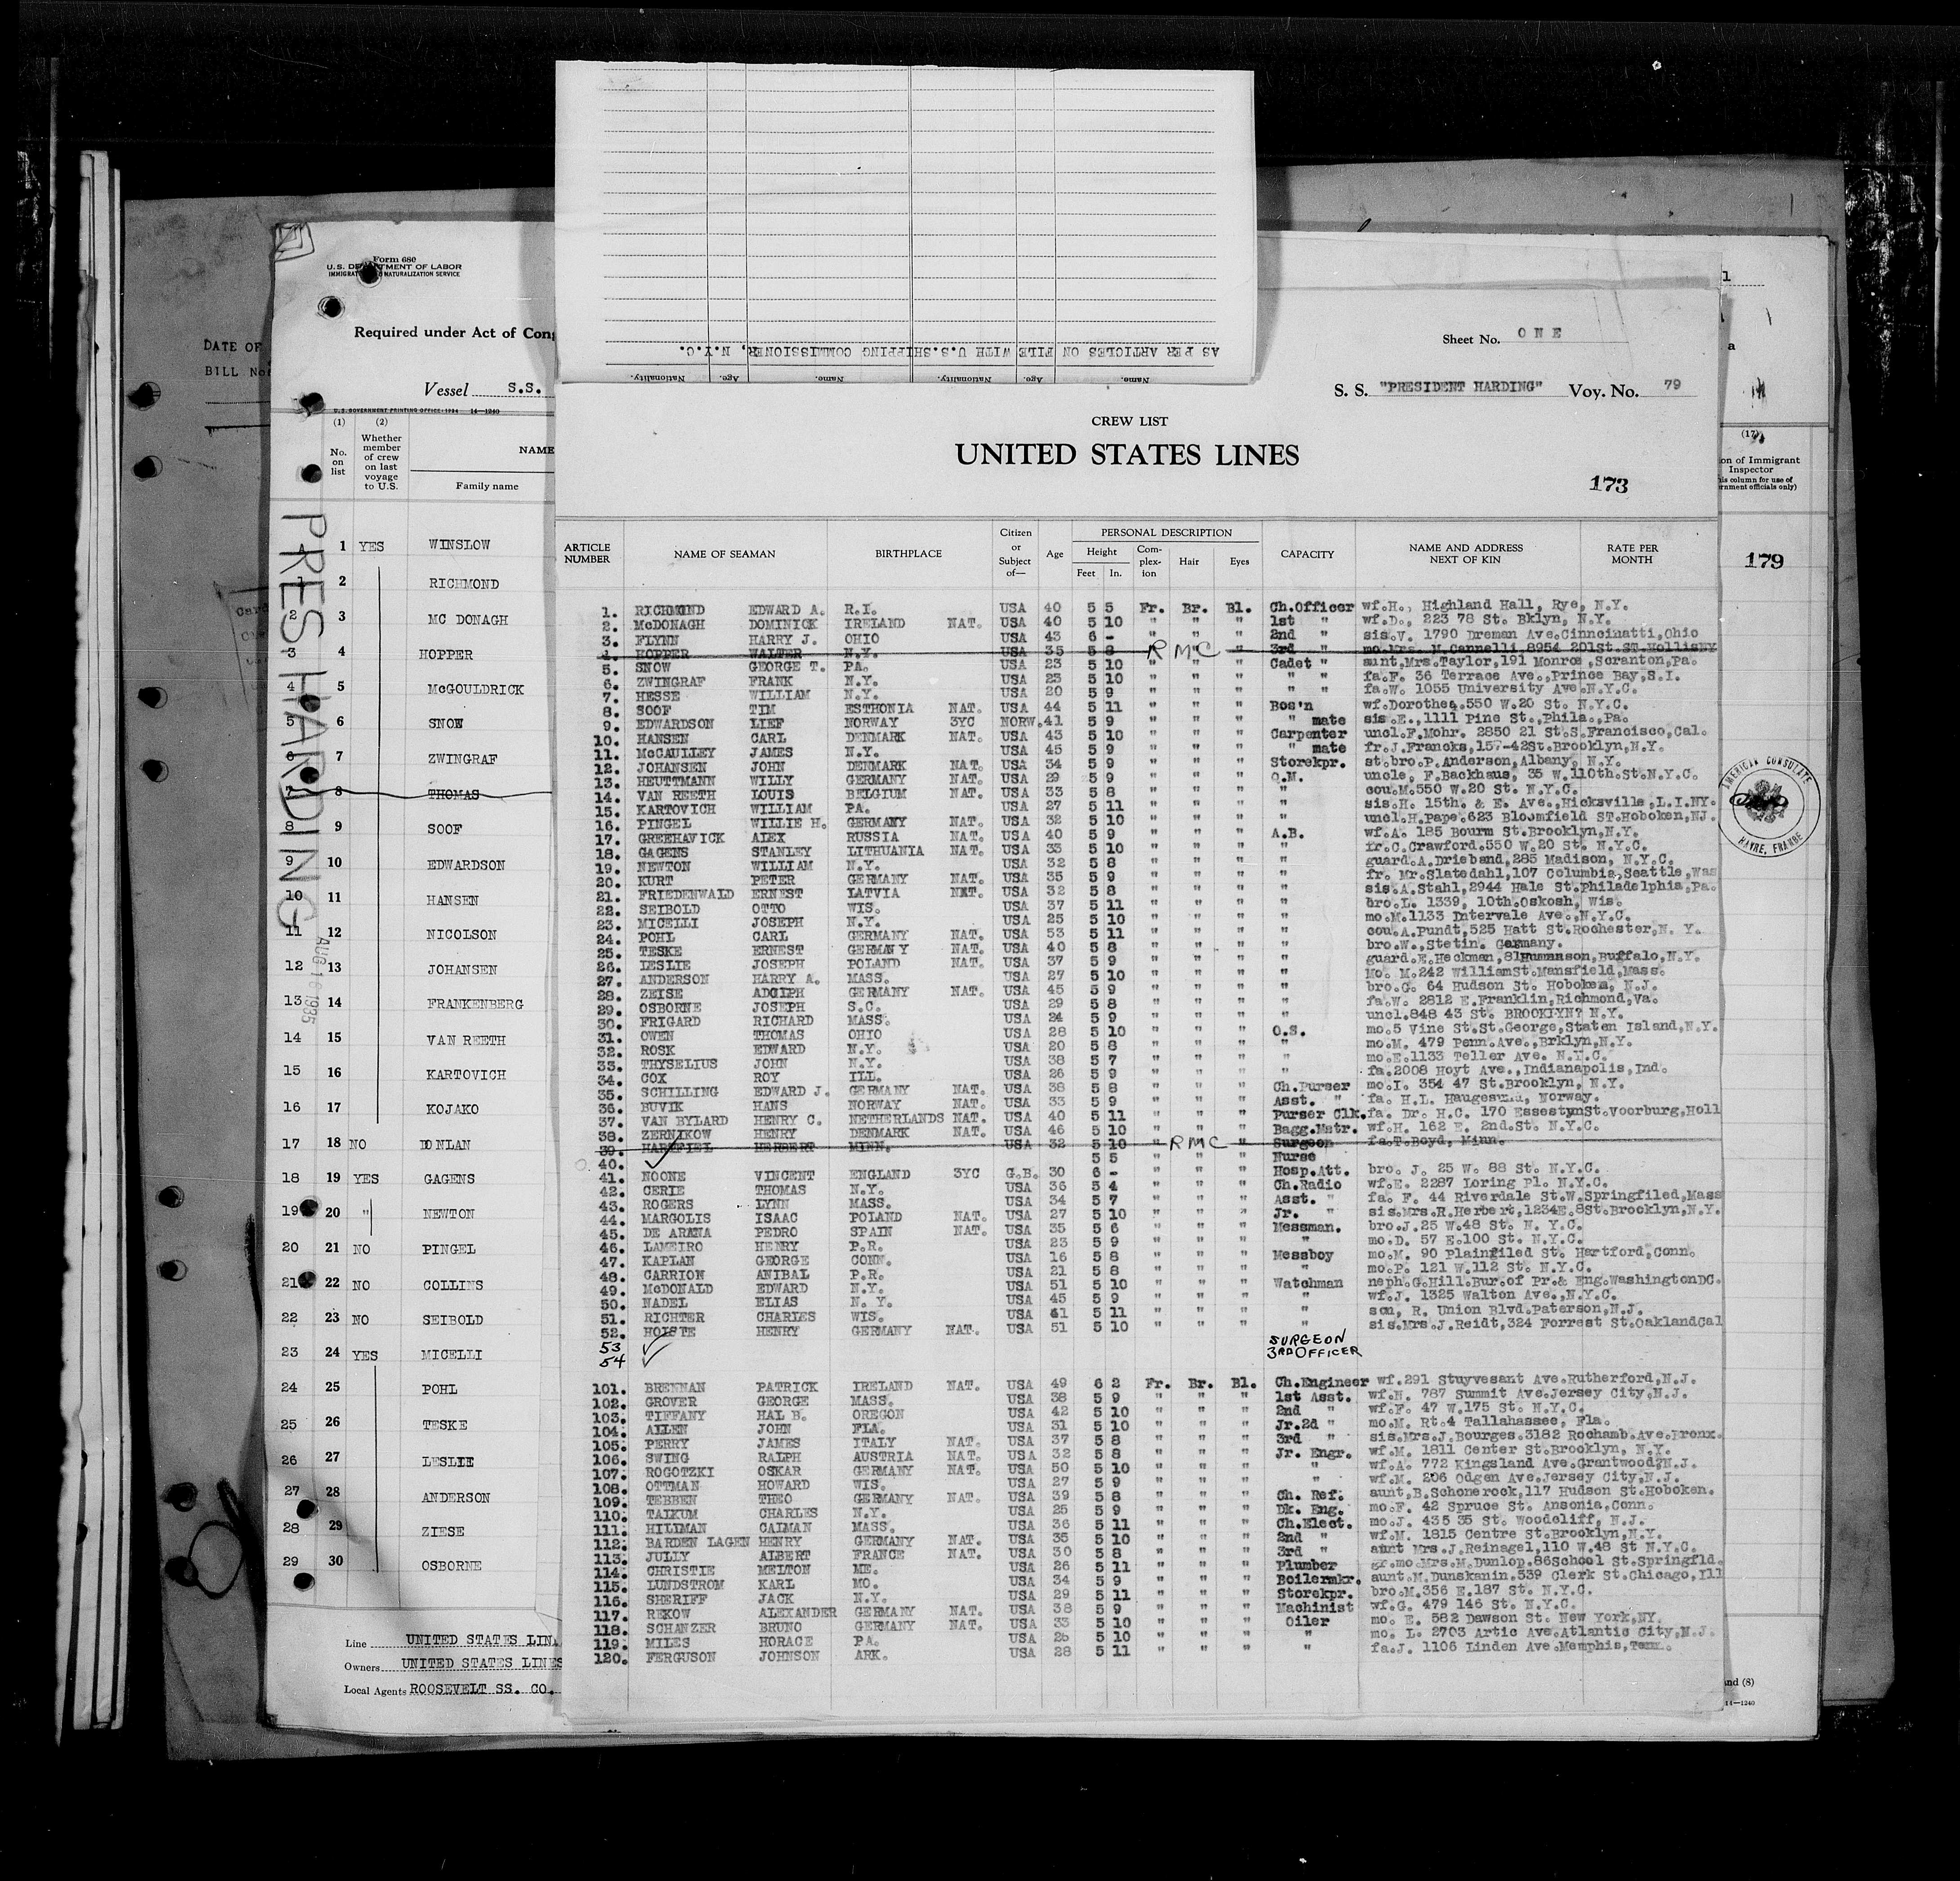 Form 680
U.S. DEPARTMENT OF LABOR
IMMIGRATION NATURALIZATION SERVICE
Required under Act of Cong
Vessel S.S.
U.S. GOVERNMENT PRINTING OFFICE: 1934 14—1240
DATE OF
BILL No
(1) (2)
No. on list
Whether member of crew on last voyage to U.S.
NAME
Family name
PRES HARDING
AUG 16 1935
1 YES WINSLOW
1 2 RICHMOND
2 3 MC DONAGH
3 4 HOPPER
4 5 McGOULDRICK
5 6 SNOW
6 7 ZWINGRAF
7 8 THOMAS
8 9 SOOF
9 10 EDWARDSON
10 11 HANSEN
11 12 NICOLSON
12 13 JOHANSEN
13 14 FRANKENBERG
14 15 VAN REETH
15 16 KARTOVICH
16 17 KOJAKO
17 18 NO DONLAN
18 19 YES GAGENS
19 20 " NEWTON
20 21 NO PINGEL
21 22 NO COLLINS
22 23 NO SEIBOLD
23 24 YES MICELLI
24 25 POHL
25 26 TESKE
26 27 LESLIE
27 28 ANDERSON
28 29 ZIESE
29 30 OSBORNE
Line UNITED STATES LIN
Owners UNITED STATES LINES
Local Agents ROOSEVELT SS. CO.
AS PER ARTICLES ON FILE WITH U.S.SHIPPING COMMISSIONER, N.Y.C.
Name. Age. Nationality. Name. Age. Nationality.
Sheet No. ONE
S. S. "PRESIDENT HARDING" Voy. No. 79
CREW LIST
UNITED STATES LINES
173
ARTICLE NUMBER NAME OF SEAMAN BIRTHPLACE Citizen or Subject of— Age PERSONAL DESCRIPTION Height Feet In. Complexion Hair Eyes CAPACITY NAME AND ADDRESS NEXT OF KIN RATE PER MONTH
1. RICHMOND EDWARD A. R.I. USA 40 5 5 Fr. Br. Bl. Ch.Officer wf.H., Highland Hall, Rye, N.Y.
2. McDONAGH DOMINICK IRELAND NAT. USA 40 5 10 " " " 1st " wf.D., 223 78 St. Bklyn, N.Y.
3. FLYNN HARRY J. OHIO USA 43 6 - " " " 2nd " sis.V. 1790 Dreman Ave.Cinncinatti,Ohio
4. HOPPER WALTER N.Y. USA 35 5 8 R M C " 3rd " mo.Mrs. M.Cannelli 8954 201St.ST.HollisNY
5. SNOW GEORGE T. PA. USA 23 5 10 " " " Cadet " aunt,Mrs.Taylor,191 Monroe,Scranton,Pa.
6. ZWINGRAF FRANK N.Y. USA 23 5 10 " " " " " fa.F. 36 Terrace Ave.,Prince Bay,S.I.
7. HESSE WILLIAM N.Y. USA 20 5 9 " " " " " fa.W. 1055 University Ave.N.Y.C.
8. SOOF TIM ESTHONIA NAT. USA 44 5 11 " " " Bos'n wf.Dorothea.550 W.20 St. N.Y.C.
9. EDWARDSON LIEF NORWAY 3YC NORW. 41 5 9 " " " " mate sis.E.,1111 Pine St.,Phila.,Pa.
10. HANSEN CARL DENMARK NAT. USA 43 5 10 " " " Carpenter uncl.F.Mohr. 2850 21 St.S.Francisco,Cal.
11. McCAULLEY JAMES N.Y. USA 45 5 9 " " " " mate fr.J.Francks,157-42St.Brooklyn,N.Y.
12. JOHANSEN JOHN DENMARK NAT. USA 34 5 9 " " " Storekpr. st.bro.P.Anderson,Albany, N.Y.
13. HEUTTMANN WILLY GERMANY NAT. USA 29 5 9 " " " Q.M. uncle, F.Backhaus, 35 W.110th.St.N.Y.C.
14. VAN REETH LOUIS BELGIUM NAT. USA 33 5 8 " " " " cou.M.550 W.20 St. N.Y.C.
15. KARTOVICH WILLIAM PA. USA 27 5 11 " " " " sis.H. 15th. & E. Ave.,Hicksville,L.I.NY.
16. PINGEL WILLIE H. GERMANY NAT. USA 32 5 10 " " " " uncl.H.Pape.623 Bloomfield ST.Hoboken,NJ.
17. GREEHAVICK ALEX RUSSIA NAT. USA 40 5 9 " " " A.B. wf.A. 185 Bourm St.Brooklyn,N.Y.
18. GAGENS STANLEY LITHUANIA NAT. USA 33 5 10 " " " " fr.C.Crawford.550 W.20 St. N.Y.C.
19. NEWTON WILLIAM N.Y. USA 32 5 8 " " " " guard.A.Drieband,285 Madison, N.Y.C.
20. KURT PETER GERMANY NAT. USA 35 5 9 " " " " fr. Mr.Slatedahl,107 Columbia,Seattle,Was
21. FRIEDENWALD ERNEST LATVIA NAT. USA 32 5 8 " " " " sis.A.Stahl,2944 Hale St.Philadelphia,Pa.
22. SEIBOLD OTTO WIS. USA 37 5 11 " " " " bro.L. 1339, 10th.Oskosh, Wis.
23. MICELLI JOSEPH N.Y. USA 25 5 10 " " " " mo.M.1133 Intervale Ave.,N.Y.C.
24. POHL CARL GERMANY NAT. USA 53 5 11 " " " " cou.A.Pundt,525 Hatt St.Rochester,N. Y.
25. TESKE ERNEST GERMANY NAT. USA 40 5 8 " " " " bro.W.,Stetin. Germany.
26. LESLIE JOSEPH POLAND NAT. USA 37 5 9 " " " " guard.E.Heckman,81Humanson,Buffalo,N.Y.
27. ANDERSON HARRY A. MASS. USA 27 5 10 " " " " Mo. M.242 WilliamSt.Mansfield,Mass.
28. ZEISE ADOLPH GERMANY NAT. USA 45 5 9 " " " " bro.G. 64 Hudson St. Hoboken, N.J.
29. OSBORNE JOSEPH S.C. USA 29 5 8 " " " " fa.W. 2812 E.Franklin,Richmond,Va.
30. FRIGARD RICHARD MASS. USA 24 5 9 " " " " uncl.848 43 St. BROOKLYN? N.Y.
31. OWEN THOMAS OHIO USA 28 5 10 " " " O.S. mo.5 Vine St.St.George,Staten Island,N.Y.
32. ROSK EDWARD N.Y. USA 20 5 8 " " " " mo.M. 479 Penn.Ave.,Brklyn,N.Y.
33. THYSELIUS JOHN N.Y. USA 38 5 7 " " " " mo.E.1133 Teller Ave. N.Y.C.
34. COX ROY ILL. USA 26 5 9 " " " " fa.2008 Hoyt Ave.,Indianapolis,Ind.
35. SCHILLING EDWARD J. GERMANY NAT. USA 38 5 8 " " " Ch.Purser mo.I. 354 47 St.Brooklyn, N.Y.
36. BUVIK HANS NORWAY NAT. USA 33 5 9 " " " Asst. " fa. H.L. Haugesund, Norway.
37. VAN BYLARD HENRY C. NETHERLANDS NAT. USA 40 5 11 " " " Purser Clk. fa. Dr. H.C. 170 EssestynSt.Voorburg,Holl
38. ZERNIKOW HENRY DENMARK NAT. USA 46 5 10 " " " Bagg.Mstr. wf.H. 162 E. 2nd.St. N.Y.C.
39. HARMFIEL HERBERT MINN. USA 32 5 10 " R M C " Surgeon fa.T.Boyd, Minn.
40. 5 5 " " " Nurse
41. NOONE VINCENT ENGLAND 3YC G.B. 30 6 - " " " Hosp.Att. bro. J. 25 W. 88 St. N.Y.C.
42. CERIE THOMAS N.Y. USA 36 5 4 " " " Ch.Radio wf.E. 2287 Loring Pl. N.Y.C.
43. ROGERS LYNN MASS. USA 34 5 7 " " " Asst. " fa. F. 44 Riverdale St.W.Springfiled,Mass
44. MARGOLIS ISAAC POLAND NAT. USA 27 5 10 " " " Jr. " sis.Mrs.R.Herbert,1234E.8St.Brooklyn,N.Y.
45. DE ARANA PEDRO SPAIN NAT. USA 35 5 6 " " " Messman. bro.J.25 W.48 St. N. Y.C.
46. LAMEIRO HENRY P.R. USA 23 5 9 " " " " mo.D. 57 E.100 St. N.Y.C.
47. KAPLAN GEORGE CONN. USA 16 5 8 " " " Messboy mo.M. 90 Plainfiled St. Hartford,Conn.
48. CARRION ANIBAL P.R. USA 21 5 8 " " " " mo.P. 121 W.112 St. N.Y.C.
49. McDONALD EDWARD N.Y. USA 51 5 10 " " " Watchman neph.G.Hill.Bur.of Pr.& Eng.WashingtonDC.
50. NADEL ELIAS N. Y. USA 45 5 9 " " " " wf.J. 1325 Walton Ave.,N.Y.C.
51. RICHTER CHARLES WIS. USA 61 5 11 " " " " son, R. Union Blvd.Paterson,N.J.
52. HOISTE HENRY GERMANY NAT. USA 51 5 10 " " " " sis.Mrs.J.Reidt,324 Forrest St.OaklandCal
53 SURGEON
54 3RD OFFICER
101. BRENNAN PATRICK IRELAND NAT. USA 49 6 2 Fr. Br. Bl. Ch.Engineer wf.291 Stuyvesant Ave.Rutherford,N.J.
102. GROVER GEORGE MASS. USA 38 5 9 " " " 1st Asst. wf.N. 787 Summit Ave.Jersey City,N.J.
103. TIFFANY HAL B. OREGON USA 42 5 10 " " " 2nd " wf.F. 47 W.175 St. N.Y.C.
104. ALLEN JOHN FLA. USA 31 5 10 " " " Jr.2d " mo.M. Rt.4 Tallahassee, Fla.
105. PERRY JAMES ITALY NAT. USA 37 5 8 " " " 3rd " sis.Mrs.J.Bourges.3182 Rochamb.Ave.Bronx.
106. SWING RALPH AUSTRIA NAT. USA 32 5 8 " " " Jr. Engr. wf.M. 1811 Center St.Brooklyn, N.Y.
107. ROGOTZKI OSKAR GERMANY NAT. USA 50 5 10 " " " " wf.A. 772 Kingsland Ave.Grantwood,N.J.
108. OTTMAN HOWARD WIS. USA 27 5 9 " " " " wf.M. 206 Odgen Ave.Jersey City,N.J.
109. TEBBEN THEO GERMANY NAT. USA 39 5 8 " " " Ch. Ref. aunt,B.Schonerock,117 Hudson St.Hoboken.
110. TAIKUM CHARLES N.Y. USA 25 5 9 " " " Dk. Eng. mo.F. 42 Spruce St. Ansonia,Conn.
111. HILLMAN CAIMAN MASS. USA 36 5 11 " " " Ch.Elect. mo.J. 435 35 St. Woodcliff, N.J.
112. BARDEN LAGEN HENRY GERMANY NAT. USA 35 5 10 " " " 2nd " wf.M. 1815 Centre St.Brooklyn,N.Y.
113. JULLY ALBERT FRANCE NAT. USA 30 5 8 " " " 3rd " aunt Mrs.J.Reinagel,110 W.48 St N.Y.C.
114. CHRISTIE MELTON ME. USA 26 5 11 " " " Plumber gr.mo.Mrs.M.Dunlop.86School St.Springfld.
115. LUNDSTROM KARL MO. USA 34 5 9 " " " Boilermkr. aunt.M.Dunskanin.539 Clerk St.Chicago,Ill
116. SHERIFF JACK N.Y. USA 29 5 11 " " " Storekpr. bro.M.356 E.187 St. N.Y.C.
117. REKOW ALEXANDER GERMANY NAT. USA 38 5 9 " " " Machinist wf.G. 479 146 St. N.Y.C.
118. SCHANZER BRUNO GERMANY NAT. USA 33 5 10 " " " Oiler mo. E. 582 Dawson St. New York,NY.
119. MILES HORACE PA. USA 26 5 10 " " " " mo. L. 2703 Artic Ave.Atlantic City,N.J.
120. FERGUSON JOHNSON ARK. USA 28 5 11 " " " " fa.J. 1106 Linden Ave.Memphis,Tenn.
(17)
on of Immigrant Inspector
his column for use of
rnment officials only)
179
AMERICAN CONSULATE
HAVRE, FRANCE
and (8)
14—1240